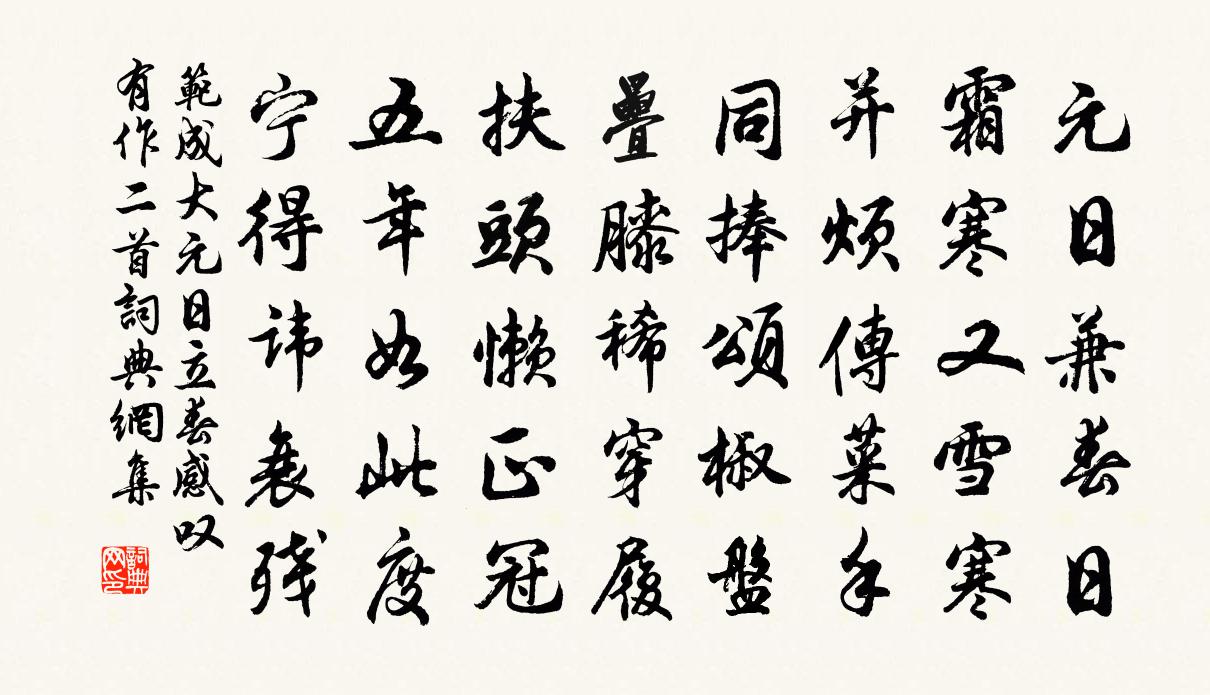 元日兼春日
霜寒又雪寒
并烦傳菜手
同捧頌椒盤
疊膝稀穿履
扶頭懒正冠
五年如此度
宁得讳衰残
範成大元日立春感叹
有作二首詞典網集
詞典
网印